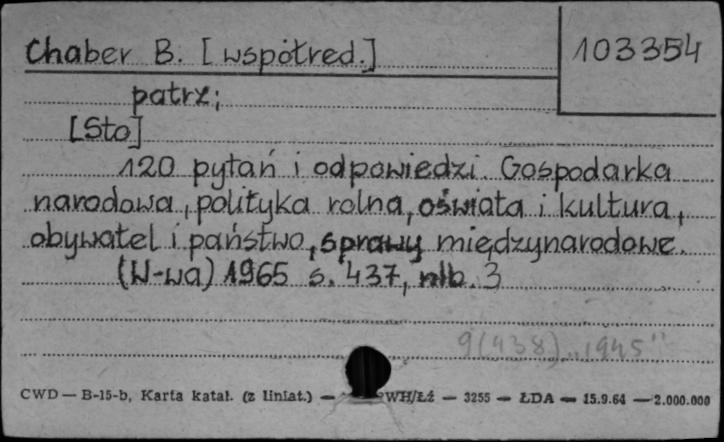 Chaber B. [współred.]
103354
patrz;
[Sto]
120 pytań i odpowiedzi. Gospodarka
narodowa, polityka rolna, oświata i kultura,
obywatel i państwo, sprawy międzynarodowe.
(W-wa) 1965 s. 437, nlb. 3
9(438) „1945"
CWD — B-15-b, Karta katal. (z liniat.) — WH/Łż — 3255 — ŁDA — 15.9.64 — 2.000.000